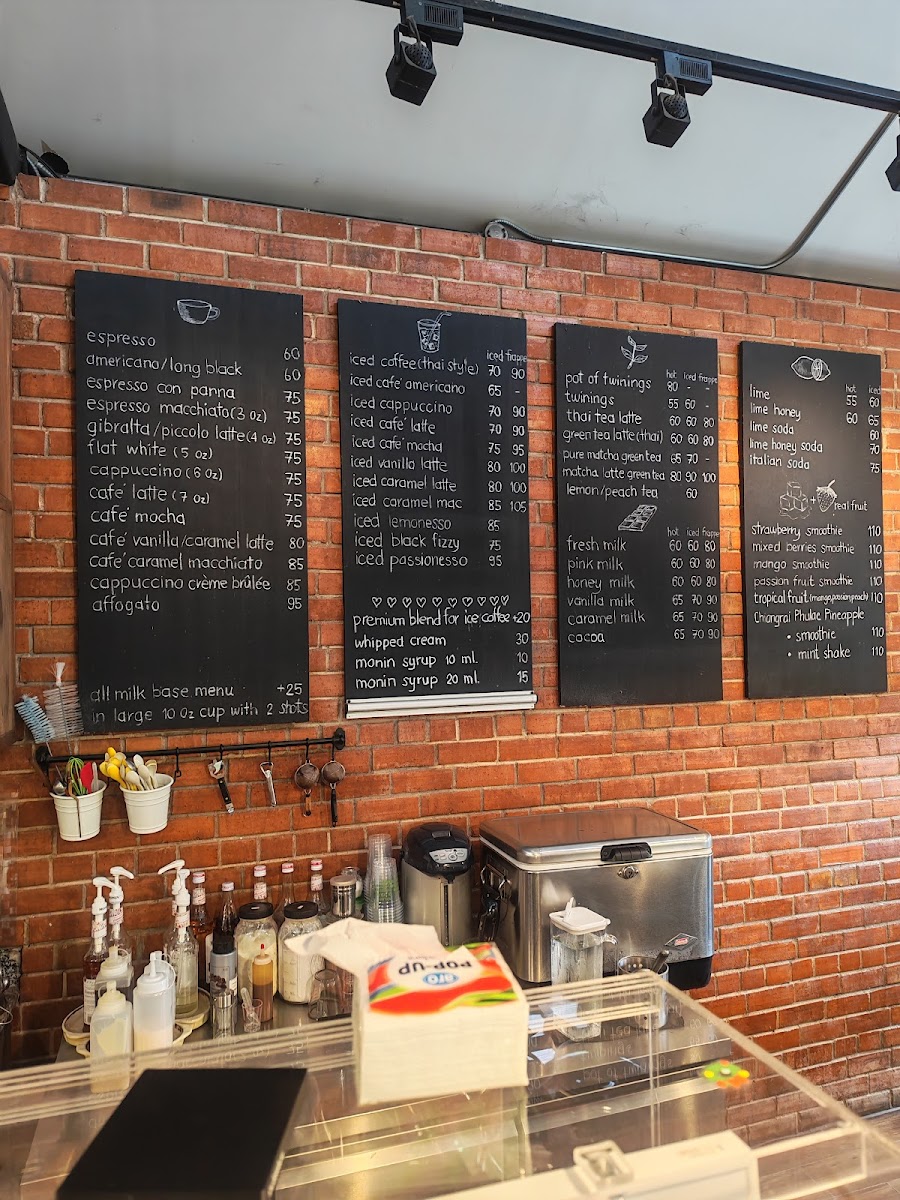 espresso 60
americano/long black 60
espresso con panna 75
espresso macchiato (3 oz) 75
gibralta/piccolo latte (4 oz) 75
flat white (5 oz) 75
cappuccino (6 oz) 75
café latte (7 oz) 75
café mocha 75
café vanilla/caramel latte 80
café caramel macchiato 85
cappuccino crème brûlée 85
affogato 95
all milk base menu +25
in large 10 oz cup with 2 shots
iced frappe
iced coffee (thai style) 70 90
iced café americano 65 -
iced cappuccino 70 90
iced café latte 70 90
iced café mocha 75 95
iced vanilla latte 80 100
iced caramel latte 80 100
iced caramel mac 85 105
iced lemonesso 85
iced black fizzy 75
iced passionesso 95
premium blend for ice coffee +20
whipped cream 30
monin syrup 10 ml. 10
monin syrup 20 ml. 15
hot iced frappe
pot of twinings 80 - -
twinings 55 60 -
thai tea latte 60 60 80
green tea latte (thai) 60 60 80
pure matcha green tea 65 70 -
matcha latte green tea 80 90 100
lemon/peach tea 60
hot iced frappe
fresh milk 60 60 80
pink milk 60 60 80
honey milk 60 60 80
vanilla milk 65 70 90
caramel milk 65 70 90
cacoa 65 70 90
hot iced
lime 50 60
lime honey 60 65
lime soda 60
lime honey soda 70
italian soda 75
+ real fruit
strawberry smoothie 110
mixed berries smoothie 110
mango smoothie 110
passion fruit smoothie 110
tropical fruit (mango,passion,peach) 110
Chiangrai Phulae Pineapple
• smoothie 110
• mint shake 110
aro
POP-UP